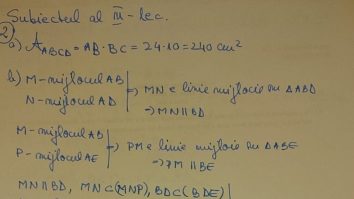 Subiectul al III-lea.
2
a) A_ABCD = AB · BC = 24 · 10 = 240 cm²
b) M - mijlocul AB
N - mijlocul AD
⇒ MN e linie mijlocie în ΔABD
⇒ MN ∥ BD
M - mijlocul AB
P - mijlocul AE
⇒ PM e linie mijlocie în ΔABE
⇒ PM ∥ BE
MN ∥ BD, MN ⊂ (MNP), BD ⊂ (BDE)